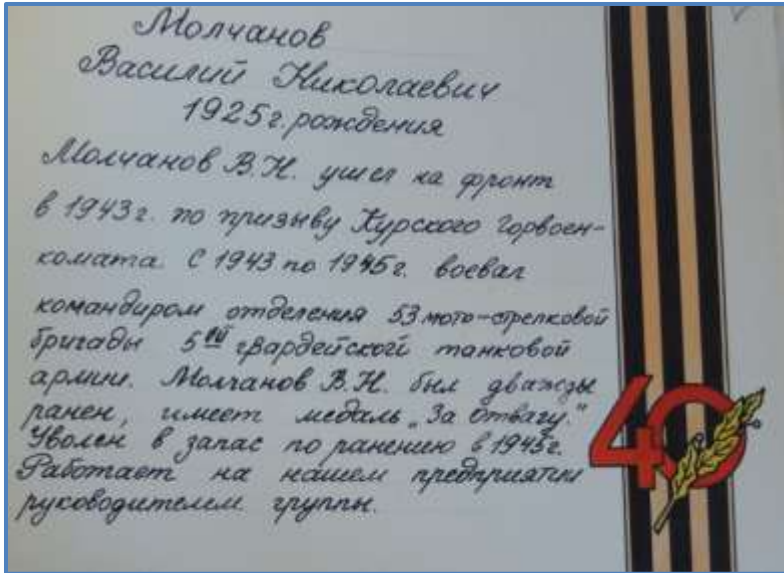 Молчанов
Василий Николаевич
1925г. рождения
Молчанов В.Н. ушел на фронт
в 1943г. по призыву Курского Горвоен-
комата. С 1943 по 1945г. воевал
командиром отделения 53 мото-стрелковой
бригады 5ой гвардейской танковой
армии. Молчанов В.Н. был дважды
ранен, имеет медаль „За отвагу."
Уволен в запас по ранению в 1945г.
Работает на нашем предприятии
руководителем группы.
40